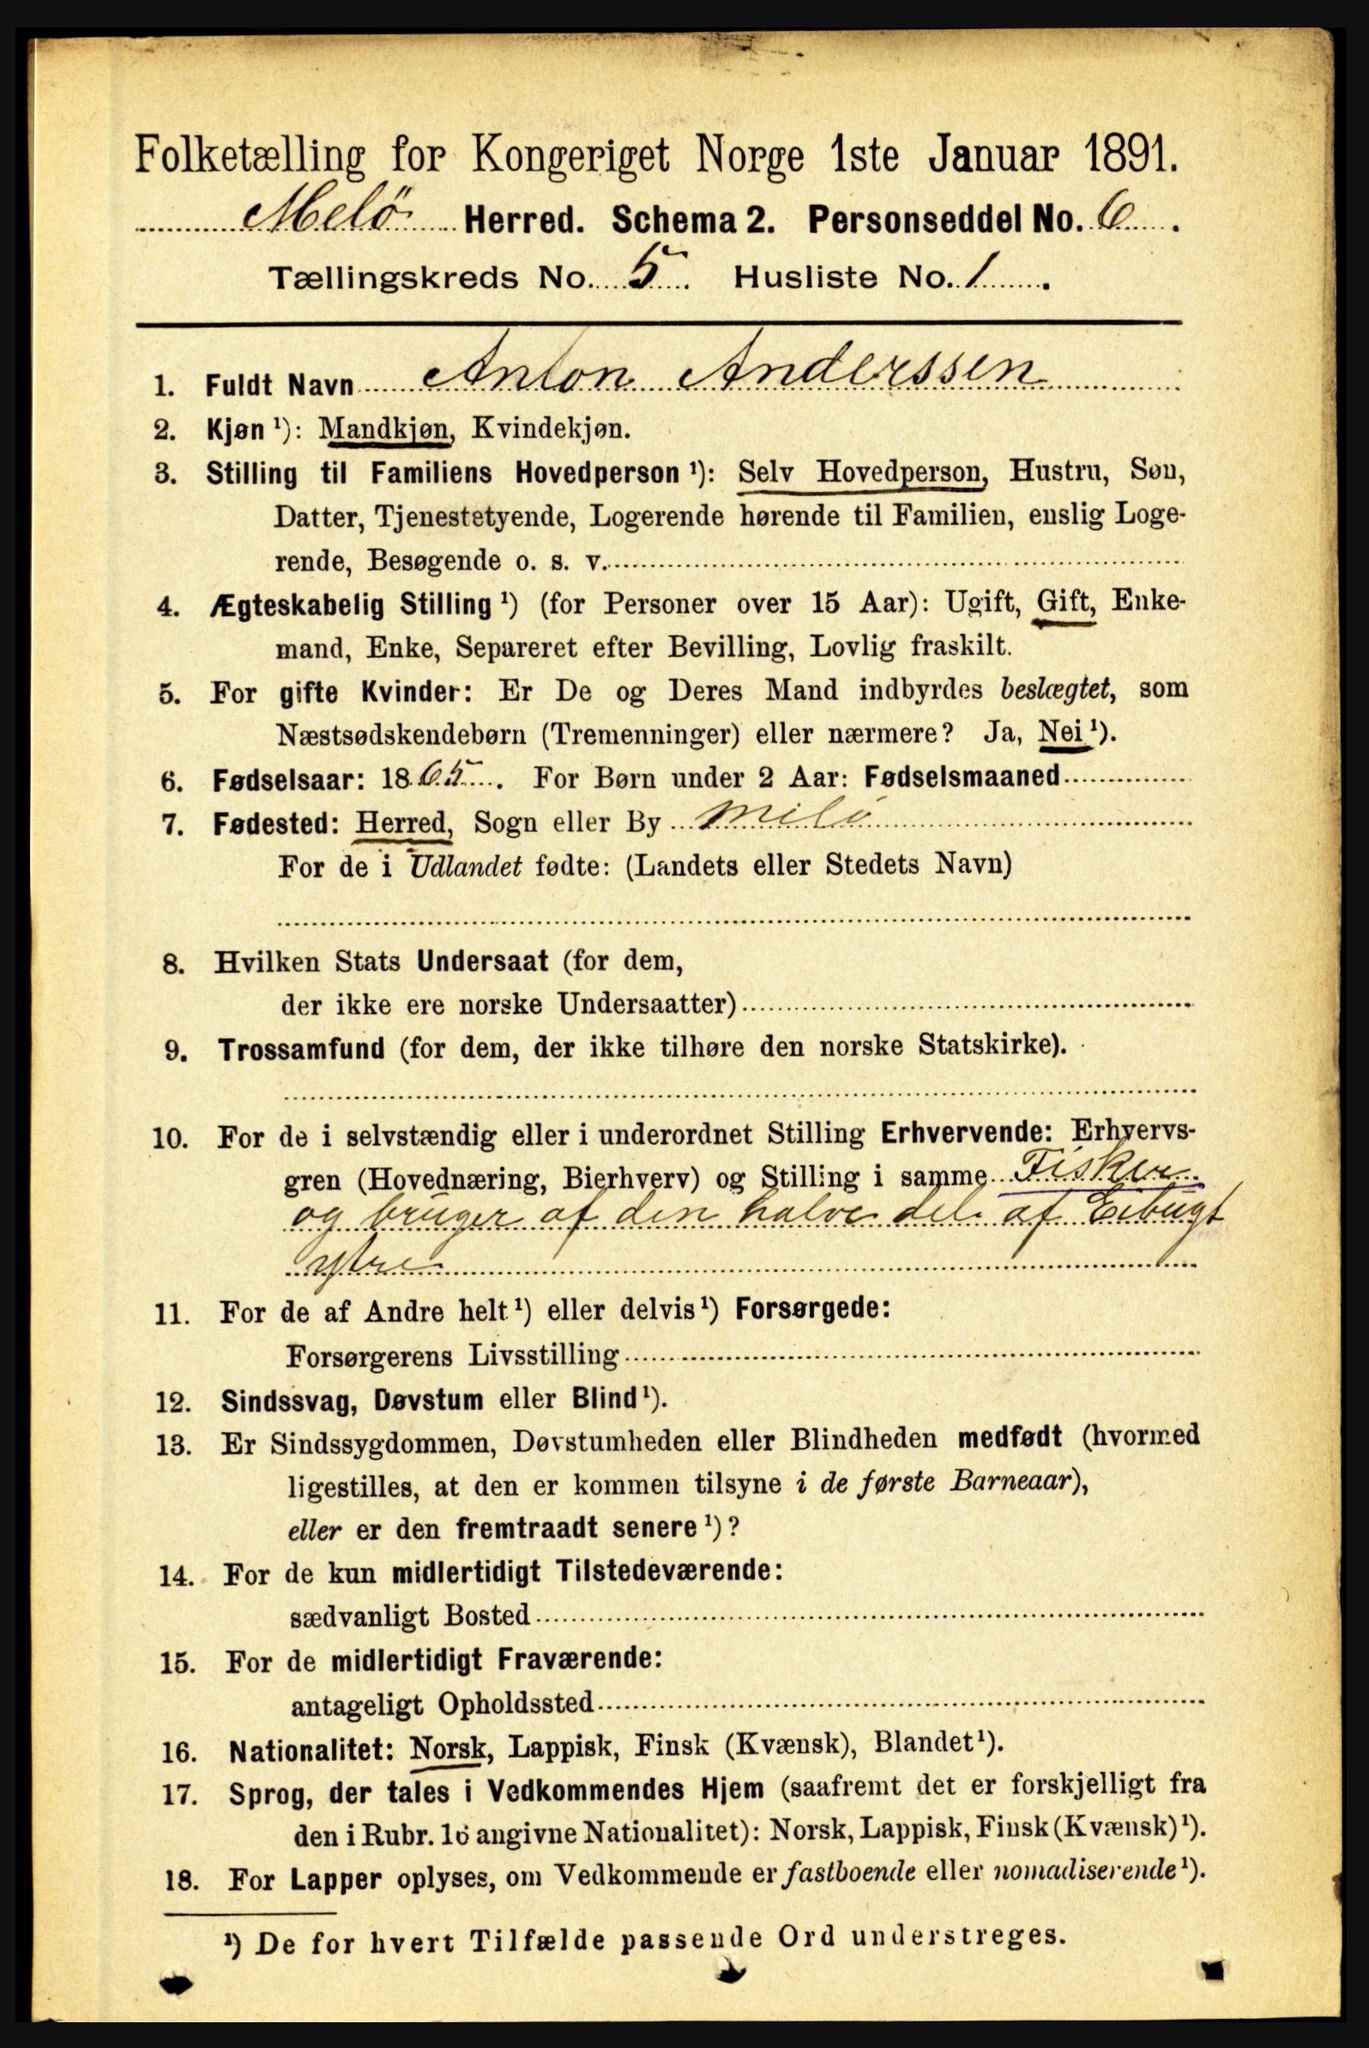 Folketælling for Kongeriget Norge 1ste Januar 1891.
Melö Herred. Schema 2. Personseddel No. 6.
Tællingskreds No. 5. Husliste No. 1.
1. Fuldt Navn Anton Anderssen
2. Kjøn¹): Mandkjøn, Kvindekjøn.
3. Stilling til Familiens Hovedperson¹): Selv Hovedperson, Hustru, Søn,
Datter, Tjenestetyende, Logerende hørende til Familien, enslig Loge-
rende, Besøgende o. s. v.
4. Ægteskabelig Stilling¹) (for Personer over 15 Aar): Ugift, Gift, Enke-
mand, Enke, Separeret efter Bevilling, Lovlig fraskilt.
5. For gifte Kvinder: Er De og Deres Mand indbyrdes beslægtet, som
Næstsødskendebørn (Tremenninger) eller nærmere? Ja, Nei¹).
6. Fødselsaar: 1865. For Børn under 2 Aar: Fødselsmaaned
7. Fødested: Herred, Sogn eller By Melö
For de i Udlandet fødte: (Landets eller Stedets Navn)
8. Hvilken Stats Undersaat (for dem,
der ikke ere norske Undersaatter)
9. Trossamfund (for dem, der ikke tilhøre den norske Statskirke).
10. For de i selvstændig eller i underordnet Stilling Erhvervende: Erhvervs-
gren (Hovednæring, Bierhverv) og Stilling i samme Fisker
og bruger af den halve del af Eibugt
ytre
11. For de af Andre helt¹) eller delvis¹) Forsørgede:
Forsørgerens Livsstilling
12. Sindssvag, Døvstum eller Blind¹).
13. Er Sindssygdommen, Døvstumheden eller Blindheden medfødt (hvormed
ligestilles, at den er kommen tilsyne i de første Barneaar),
eller er den fremtraadt senere¹)?
14. For de kun midlertidigt Tilstedeværende:
sædvanligt Bosted
15. For de midlertidigt Fraværende:
antageligt Opholdssted
16. Nationalitet: Norsk, Lappisk, Finsk (Kvænsk), Blandet¹).
17. Sprog, der tales i Vedkommendes Hjem (saafremt det er forskjelligt fra
den i Rubr. 16 angivne Nationalitet): Norsk, Lappisk, Finsk (Kvænsk)¹).
18. For Lapper oplyses, om Vedkommende er fastboende eller nomadiserende¹).
¹) De for hvert Tilfælde passende Ord understreges.